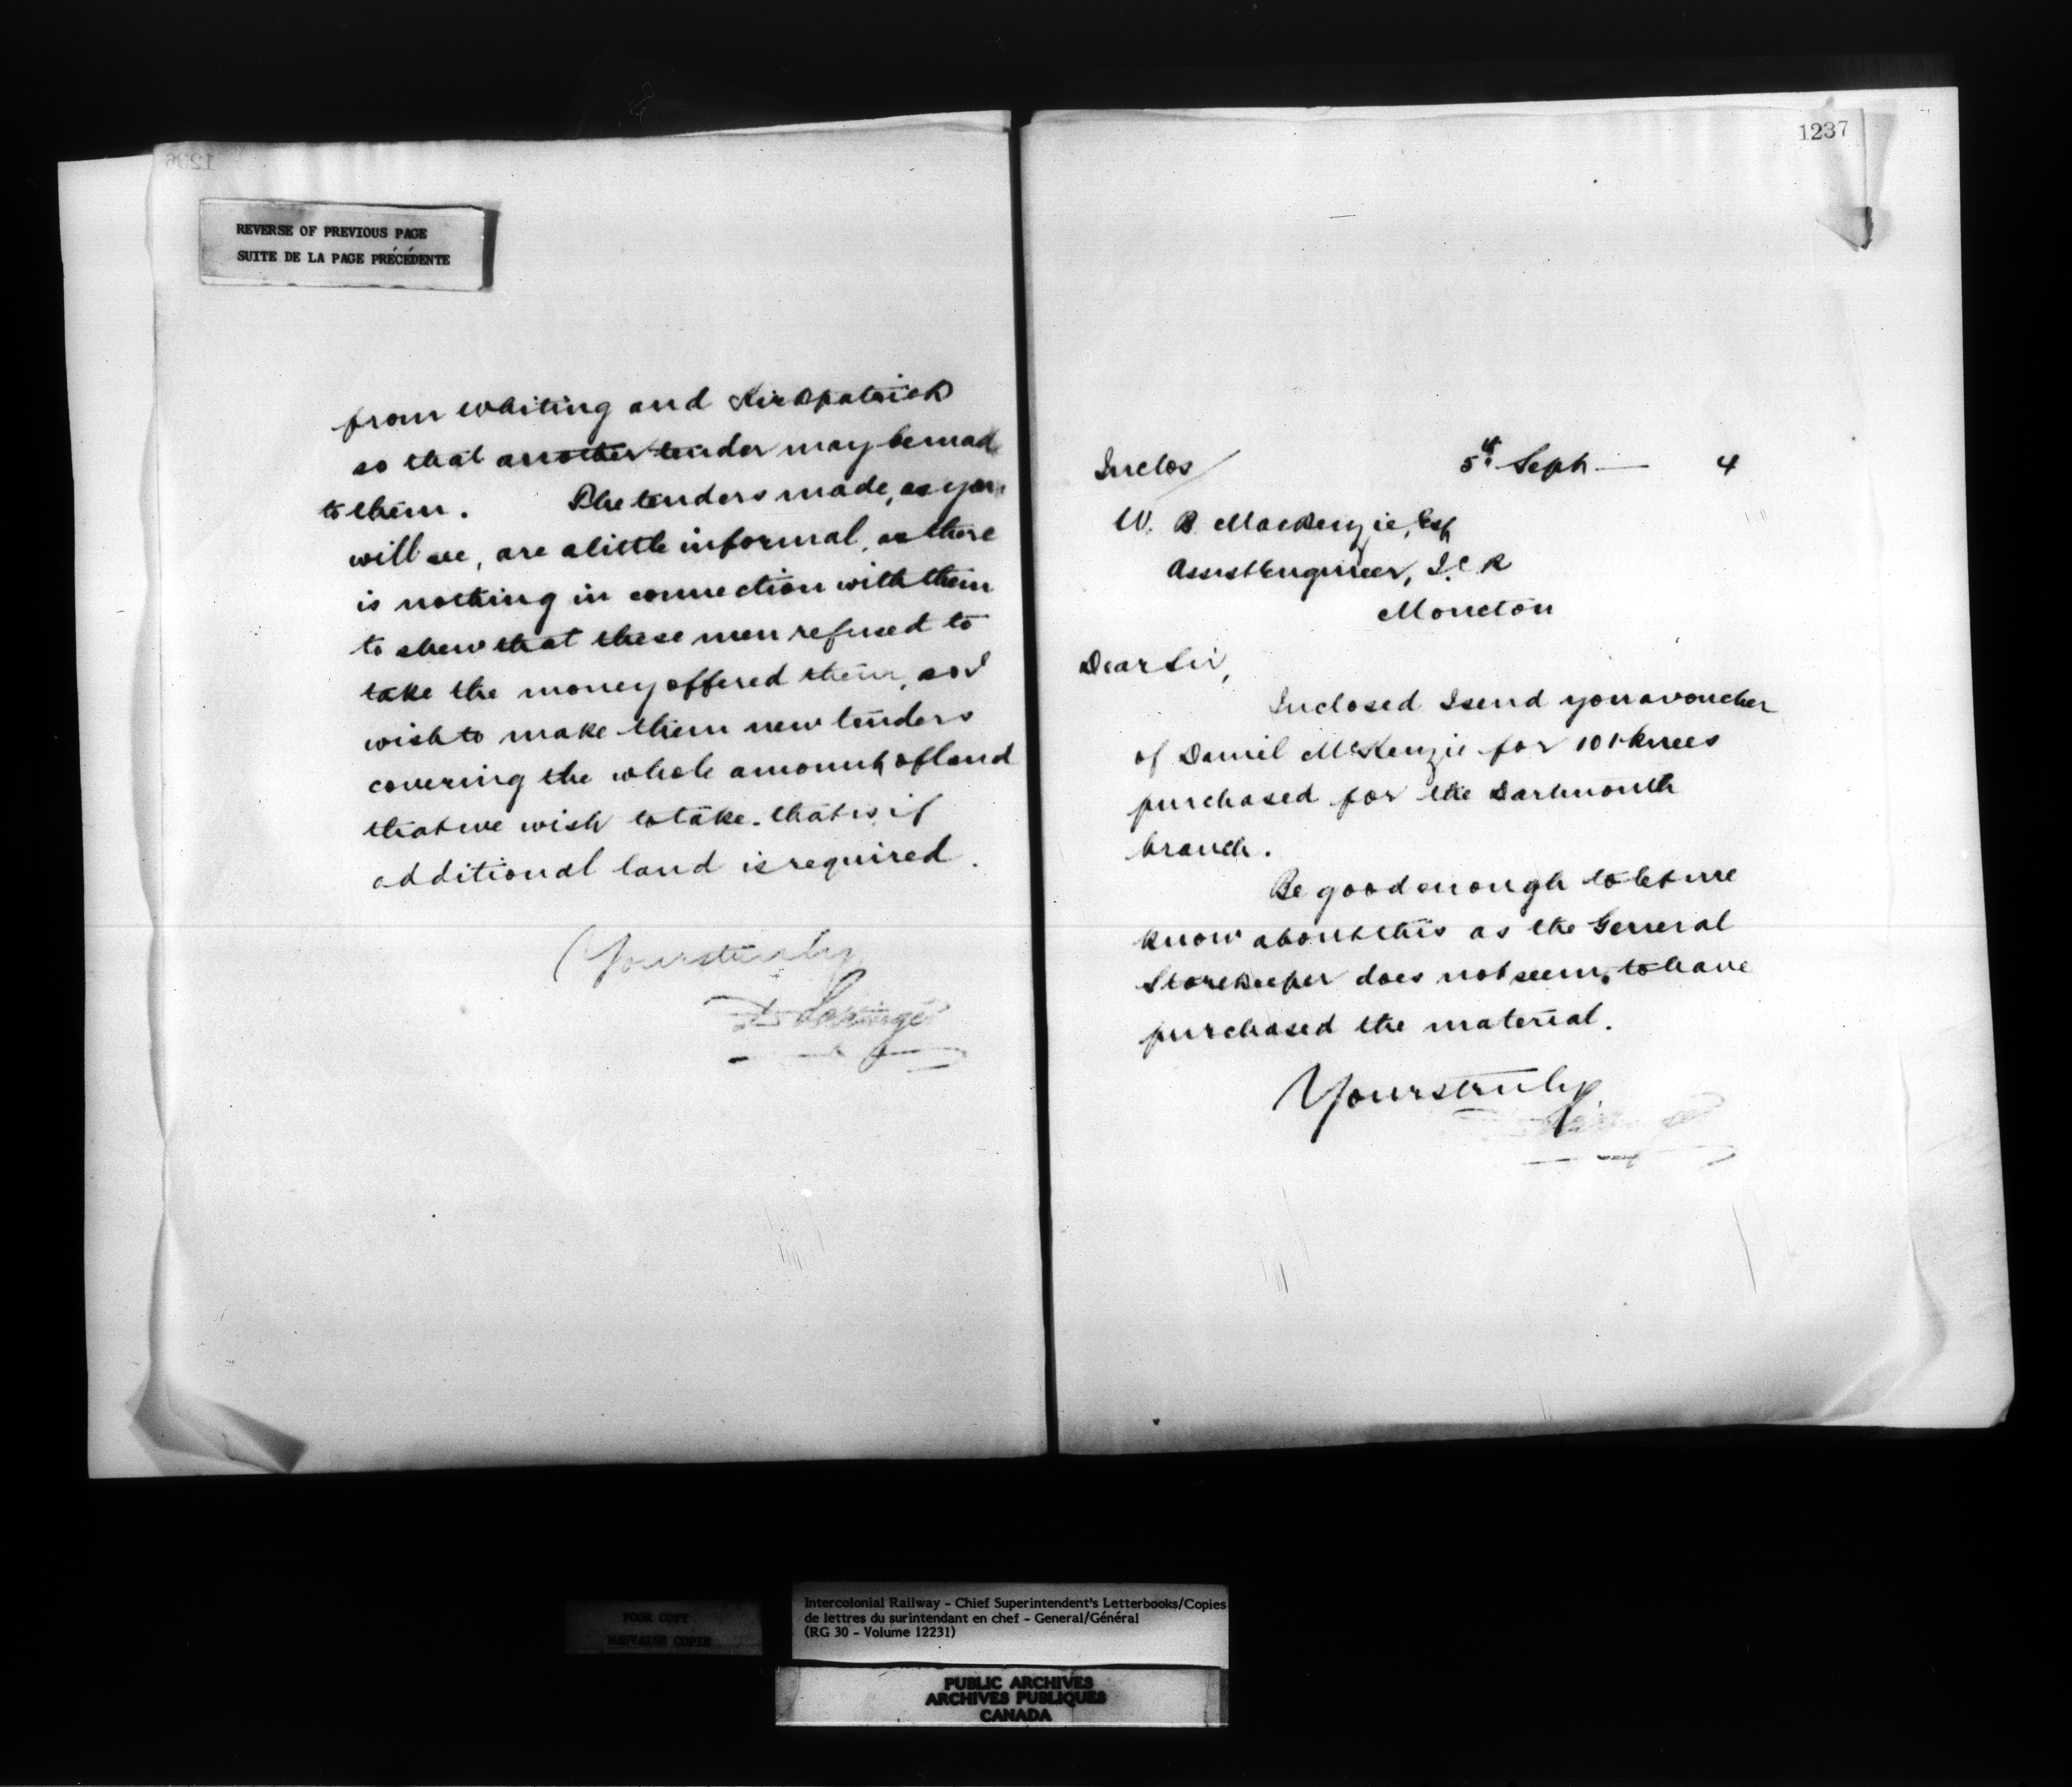 1236
REVERSE OF PREVIOUS PAGE
SUITE DE LA PAGE PRÉCÉDENTE
from Whiting and Kirkpatrick
so that another tender may be made
to them. The tenders made, as you
will see, are a little informal, as there
is nothing in connection with them
to shew that these men refused to
take the money offered them, so I
wish to make them new tenders
covering the whole amount of land
that we wish to take. that is if
additional land is required.
Yours truly
D Pottinger
1237
Inclos
5th Sept 4
W. B. MacKenzie, Esq
Assist Engineer, I.C.R
Moncton
Dear Sir,
Inclosed I send you a voucher
of Daniel McKenzie for 101 knees
purchased for the Dartmouth
branch.
Be good enough to let me
know about this as the General
Storekeeper does not seem to have
purchased the material.
Yours truly
D Pottinger
POOR COPY
MAUVAISE COPIE
Intercolonial Railway - Chief Superintendent's Letterbooks/Copies
de lettres du surintendant en chef - General/Général
(RG 30 - Volume 12231)
PUBLIC ARCHIVES
ARCHIVES PUBLIQUES
CANADA